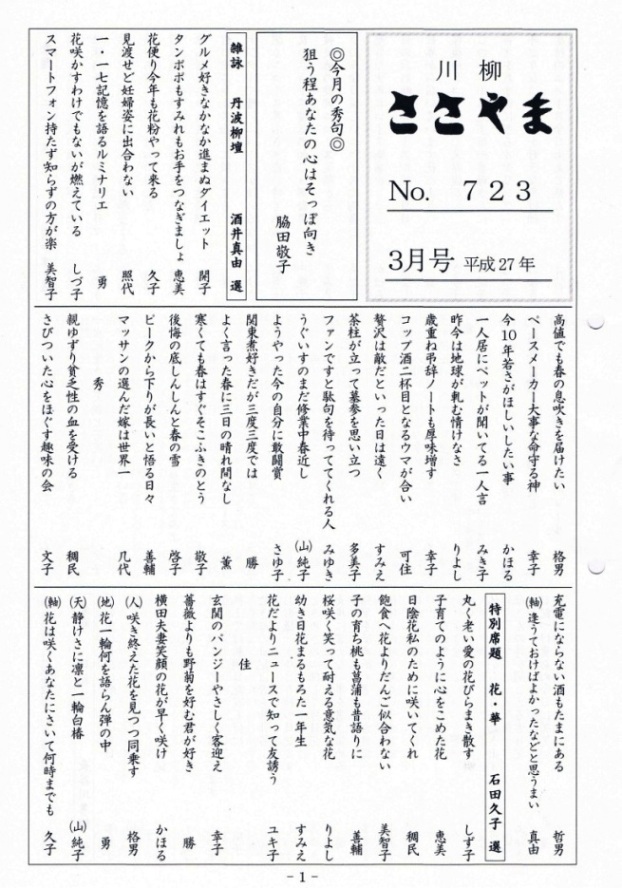 川柳
ささやま
No. 723
3月号 平成27年
◎今月の秀句◎
狙う程あなたの心はそっぽ向き
脇田敬子
雑詠 丹波柳壇 酒井真由 選
グルメ好きなかなか進まぬダイエット 開子
タンポポもすみれもお手をつなぎましょ 恵美
花便り今年も花粉やって来る 久子
見渡せど妊婦姿に出合わない 照代
一・一七記憶を語るルミナリエ 勇
花咲かすわけでもないが燃えている しづ子
スマートフォン持たず知らずの方が楽 美智子
高値でも春の息吹きを届けたい 格男
ペースメーカー大事な命守る神 幸子
今10年若さがほしいしたい事 かほる
一人居にペットが聞いてる一人言 みき子
昨今は地球が軋む情けなさ りよし
歳重ね弔辞ノートも厚味増す 幸子
コップ酒二杯目となるウマが合い 可住
贅沢は敵だといった日は遠く すみえ
茶柱が立って墓参を思い立つ 多美子
ファンですと駄句を待っててくれる人 みゆき
うぐいすのまだ修業中春近し (山)純子
ようやった今の自分に敢闘賞 さゆ子
関東煮好きだが三度三度では 勝
よく言った春に三日の晴れ間なし 薫
寒くても春はすぐそこふきのとう 敬子
後悔の底しんしんと春の雪 啓子
ピークから下りが長いと悟る日々 善輔
マッサンの選んだ嫁は世界一 几代
秀
親ゆずり貧乏性の血を受ける 稠民
さびついた心をほぐす趣味の会 文子
充電にならない酒もたまにある 哲男
(軸)逢うておけばよかったなどと思うまい 真由
特別席題 花・華 石田久子 選
丸く老い愛の花びらまき散す しず子
子育てのように心をこめた花 恵美
日陰花私のために咲いてくれ 稠民
飽食へ花よりだんご似合わない 美智子
子の育ち桃も菖蒲も昔語りに 善輔
桜咲く笑って耐える意気な花 りよし
幼き日花まるもろた一年生 すみえ
花だよりニュースで知って友誘う ユキ子
佳
玄関のパンジーやさしく客迎え 幸子
薔薇よりも野菊を好む君が好き 勝
横田夫妻笑顔の花が早く咲け かほる
(人)咲き終えた花を見つつ同乗す 格男
(地)花一輪何を語らん弾の中 勇
(天)静けさに凛と一輪白椿 (山)純子
(軸)花は咲くあなたにさいて何時までも 久子
- 1 -